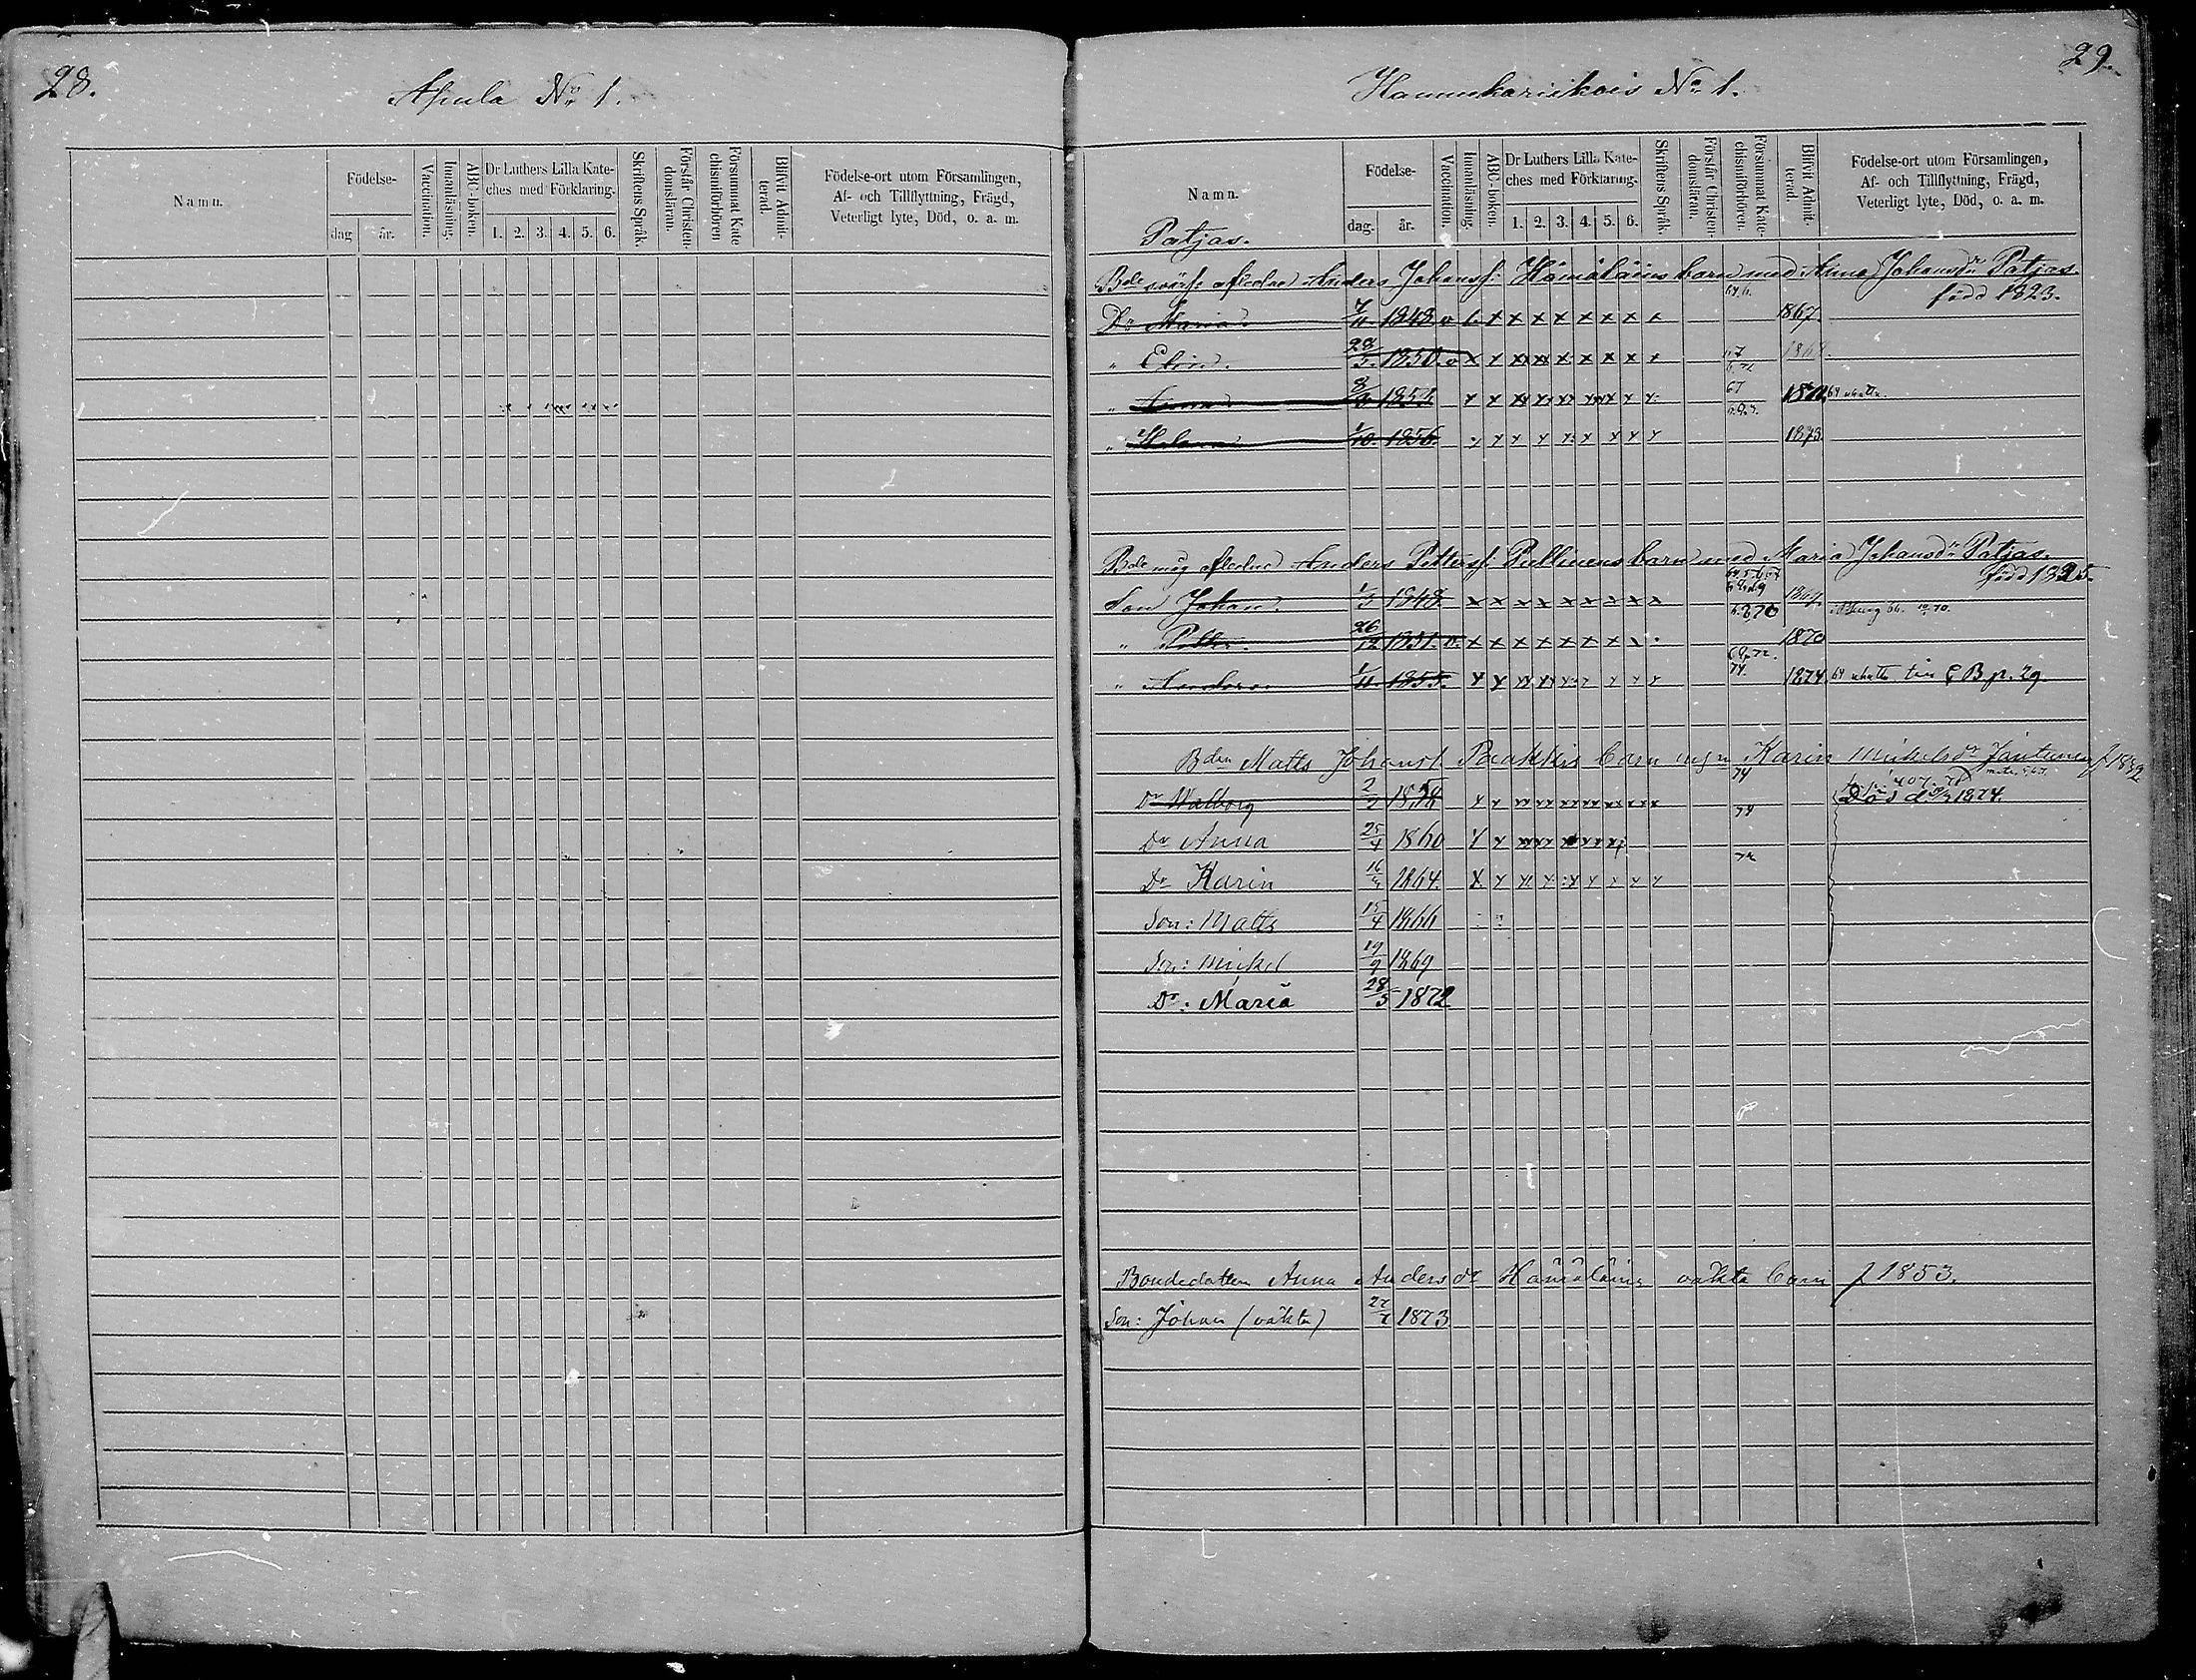 28.
Apula No 1.
Namn.
Födelse-
dag
år.
Vaccination.
Innanläsning.
ABC-boken.
Dr Luthers Lilla Kate-
ches med Förklaring.
1. 2. 3. 4. 5. 6.
Skriftens Språk.
Förstår Christen-
domsläran.
Försummat Kate
chismiförhören
Blifvit Admit-
terad.
Födelse-ort utom Församlingen,
Af- och Tillflyttning, Frägd,
Veterligt lyte, Död, o. a. m.
29.
Hannukariskois No 1.
Namn.
Patjas.
Födelse-
dag.
år.
Vaccination.
Innanläsning.
ABC-boken.
Dr Luthers Lilla Kate-
ches med Förklaring.
1. 2. 3. 4. 5. 6.
Skriftens Språk.
Förstår Christen-
domsläran.
Försummat Kate-
chismiförhören.
Blifvit Admit-
terad.
Födelse-ort utom Församlingen,
Af- och Tillflyttning, Frägd,
Veterligt lyte, Död, o. a. m.
Bde afledne Anders Johansf: Hämäläins barn med Anna Johansdr Patjas
född 1823.
Dr Maria 1848 v x x x x x x x x 1867
" Elin. 28/5 1850. v x x x x x x x x 67
" 8/ 1853 x x x x x x x x 67 64
" Helena 1/10. 1856. x x x x x x x 1873
Bde måg afledne Anders Pettersf: Pullinens barn med Maria Johansdr Patjas.
född 1825.
Son Johan. 1/3 1848. x x x x x x x x x
" Petter. 26/12 1851. v. x x x x x x x 1870
" 1/11. 1855. x x x x x x x x 74. 1874 64 B p. 29
Bden Matts Johansf Paakkis barn m Karin Mickelsdr Jäntunen f 1832
Dr Walborg 2/2 1858 x x x x x x x x x 74 Död 1874.
Dr Anna 25/4 1860 x x x x x x x x 74
Dr Karin 16/ 1864. x x x x x x x x x
Son: Matts 15/4 1866
Son: Mickel 19/9 1869
Dr: Maria 28/5 1872
Bondedottern Anna Anders dr Hämäläins oäkta barn f 1853.
Son: Johan (oäkta) 1873